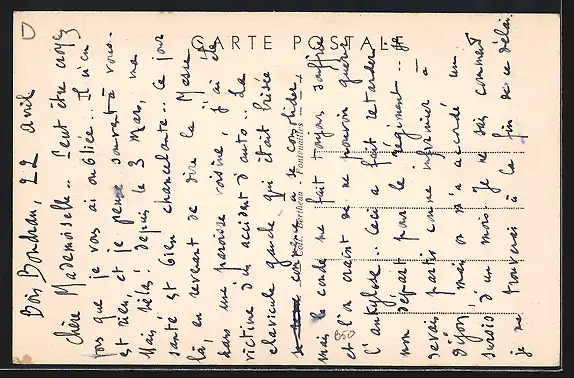 CARTE POSTALE
Bois Boudran, 22 avril
Chère Mademoiselle.. Peut être croyez
vous que je vous ai oubliée.. Il n'en
est rien, et je pense souvent à vous.
Mais, hélas! depuis le 3 Mars, ma
santé est bien chancelante.. Ce jour
là, en revenant de dire la Messe
dans une paroisse voisine, j'ai été
victime d'un accident d'auto.. La
clavicule gauche qui était brisée
commence à se consolider
mais le coude me fait toujours souffrir
et l'on craint de ne pouvoir guérir
l'ankylose.. Ceci a fait retarder
mon départ pour le régiment.. Je
devais partir comme infirmier à
Dijon, mais on m'a accordé un
sursis d'un mois. Je ne sais comment
je me trouverai à la fin de ce délai.
Edit. Fontenailles